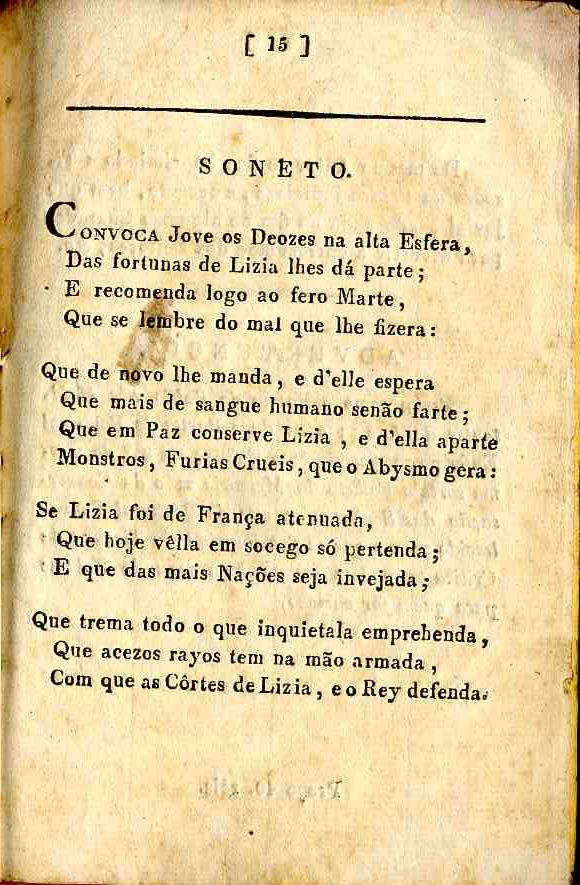 [ 15 ]
SONETO.
CONVOCA Jove os Deozes na alta Esfera,
Das fortunas de Lizia lhes dá parte ;
E recomenda logo ao fero Marte ,
Que se lembre do mal que lhe fizera :
Que de novo lhe manda , e d'elle espera
Que mais de sangue humano senão farte ;
Que em Paz conserve Lizia , e d'ella aparte
Monstros , Furias Crueis , que o Abysmo gera :
Se Lizia foi de França atenuada,
Que hoje vêlla em socego só pertenda ;
E que das mais Nações seja invejada ;
Que trema todo o que inquietala emprehenda ,
Que acezos rayos tem na mão armada ,
Com que as Côrtes de Lizia , e o Rey defenda.